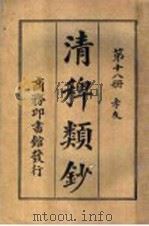 第十八冊 孝友
清稗類鈔
商務印書館發行